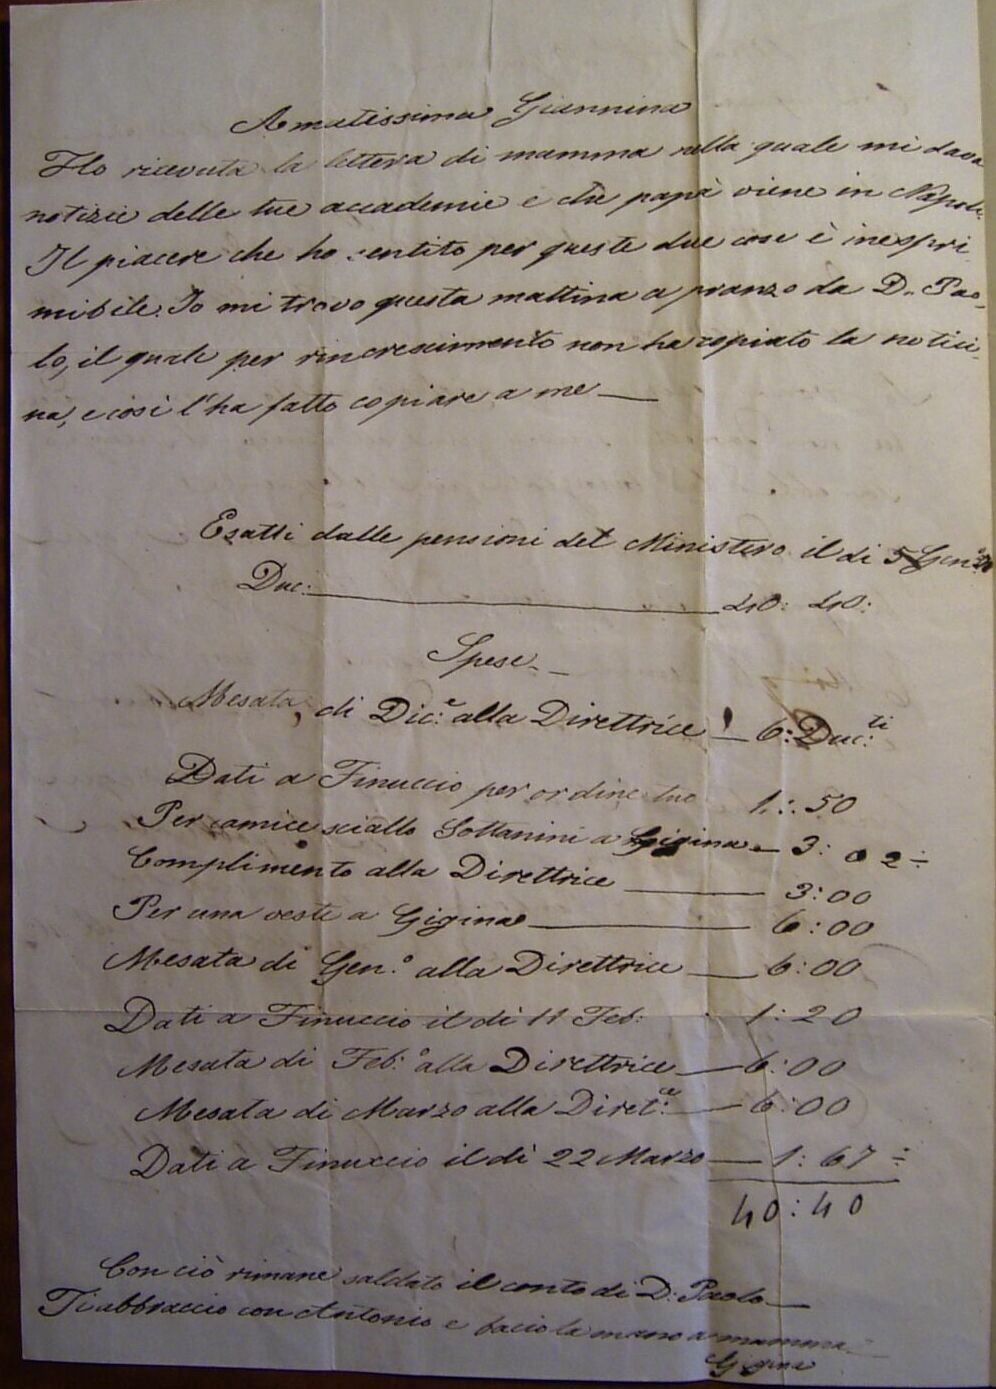 Amatissima Giannina
Ho ricevuta la lettera di mamma nella quale mi dava
notizie delle tue accademie e che papà viene in Napoli.
Il piacere che ho sentito per queste due cose è inespri
mibile. Io mi trovo questa mattina a pranzo da D. Pao-
lo, il quale per rincrescimento non ha copiato la notici-
na, e così l'ha fatto copiare a me —
Esatti dalle pensioni del Ministero il di 5 Gen:º
Duc: — 40: 40:
Spese -
Mesata di Dic:e alla Direttrice — 6: Duc:ti
Dati a Finuccio per ordine tuo 1: 50
Per camice sciallo Sottanini a Gigina — 3: 02 ÷
Complimento alla Direttrice — 3: 00
Per una veste a Gigina — 6: 00
Mesata di Gen:º alla Direttrice — 6: 00
Dati a Finuccio il di 11 Feb: 1: 20
Mesata di Feb:º alla Direttrice — 6: 00
Mesata di Marzo alla Diret:ce — 6: 00
Dati a Finuccio il dì 22 Marzo — 1: 67 ÷
40: 40
Con ciò rimane saldato il conto di D. Paolo —
Ti abbraccio con Antonio e bacio la mano a mamma —
Gigina